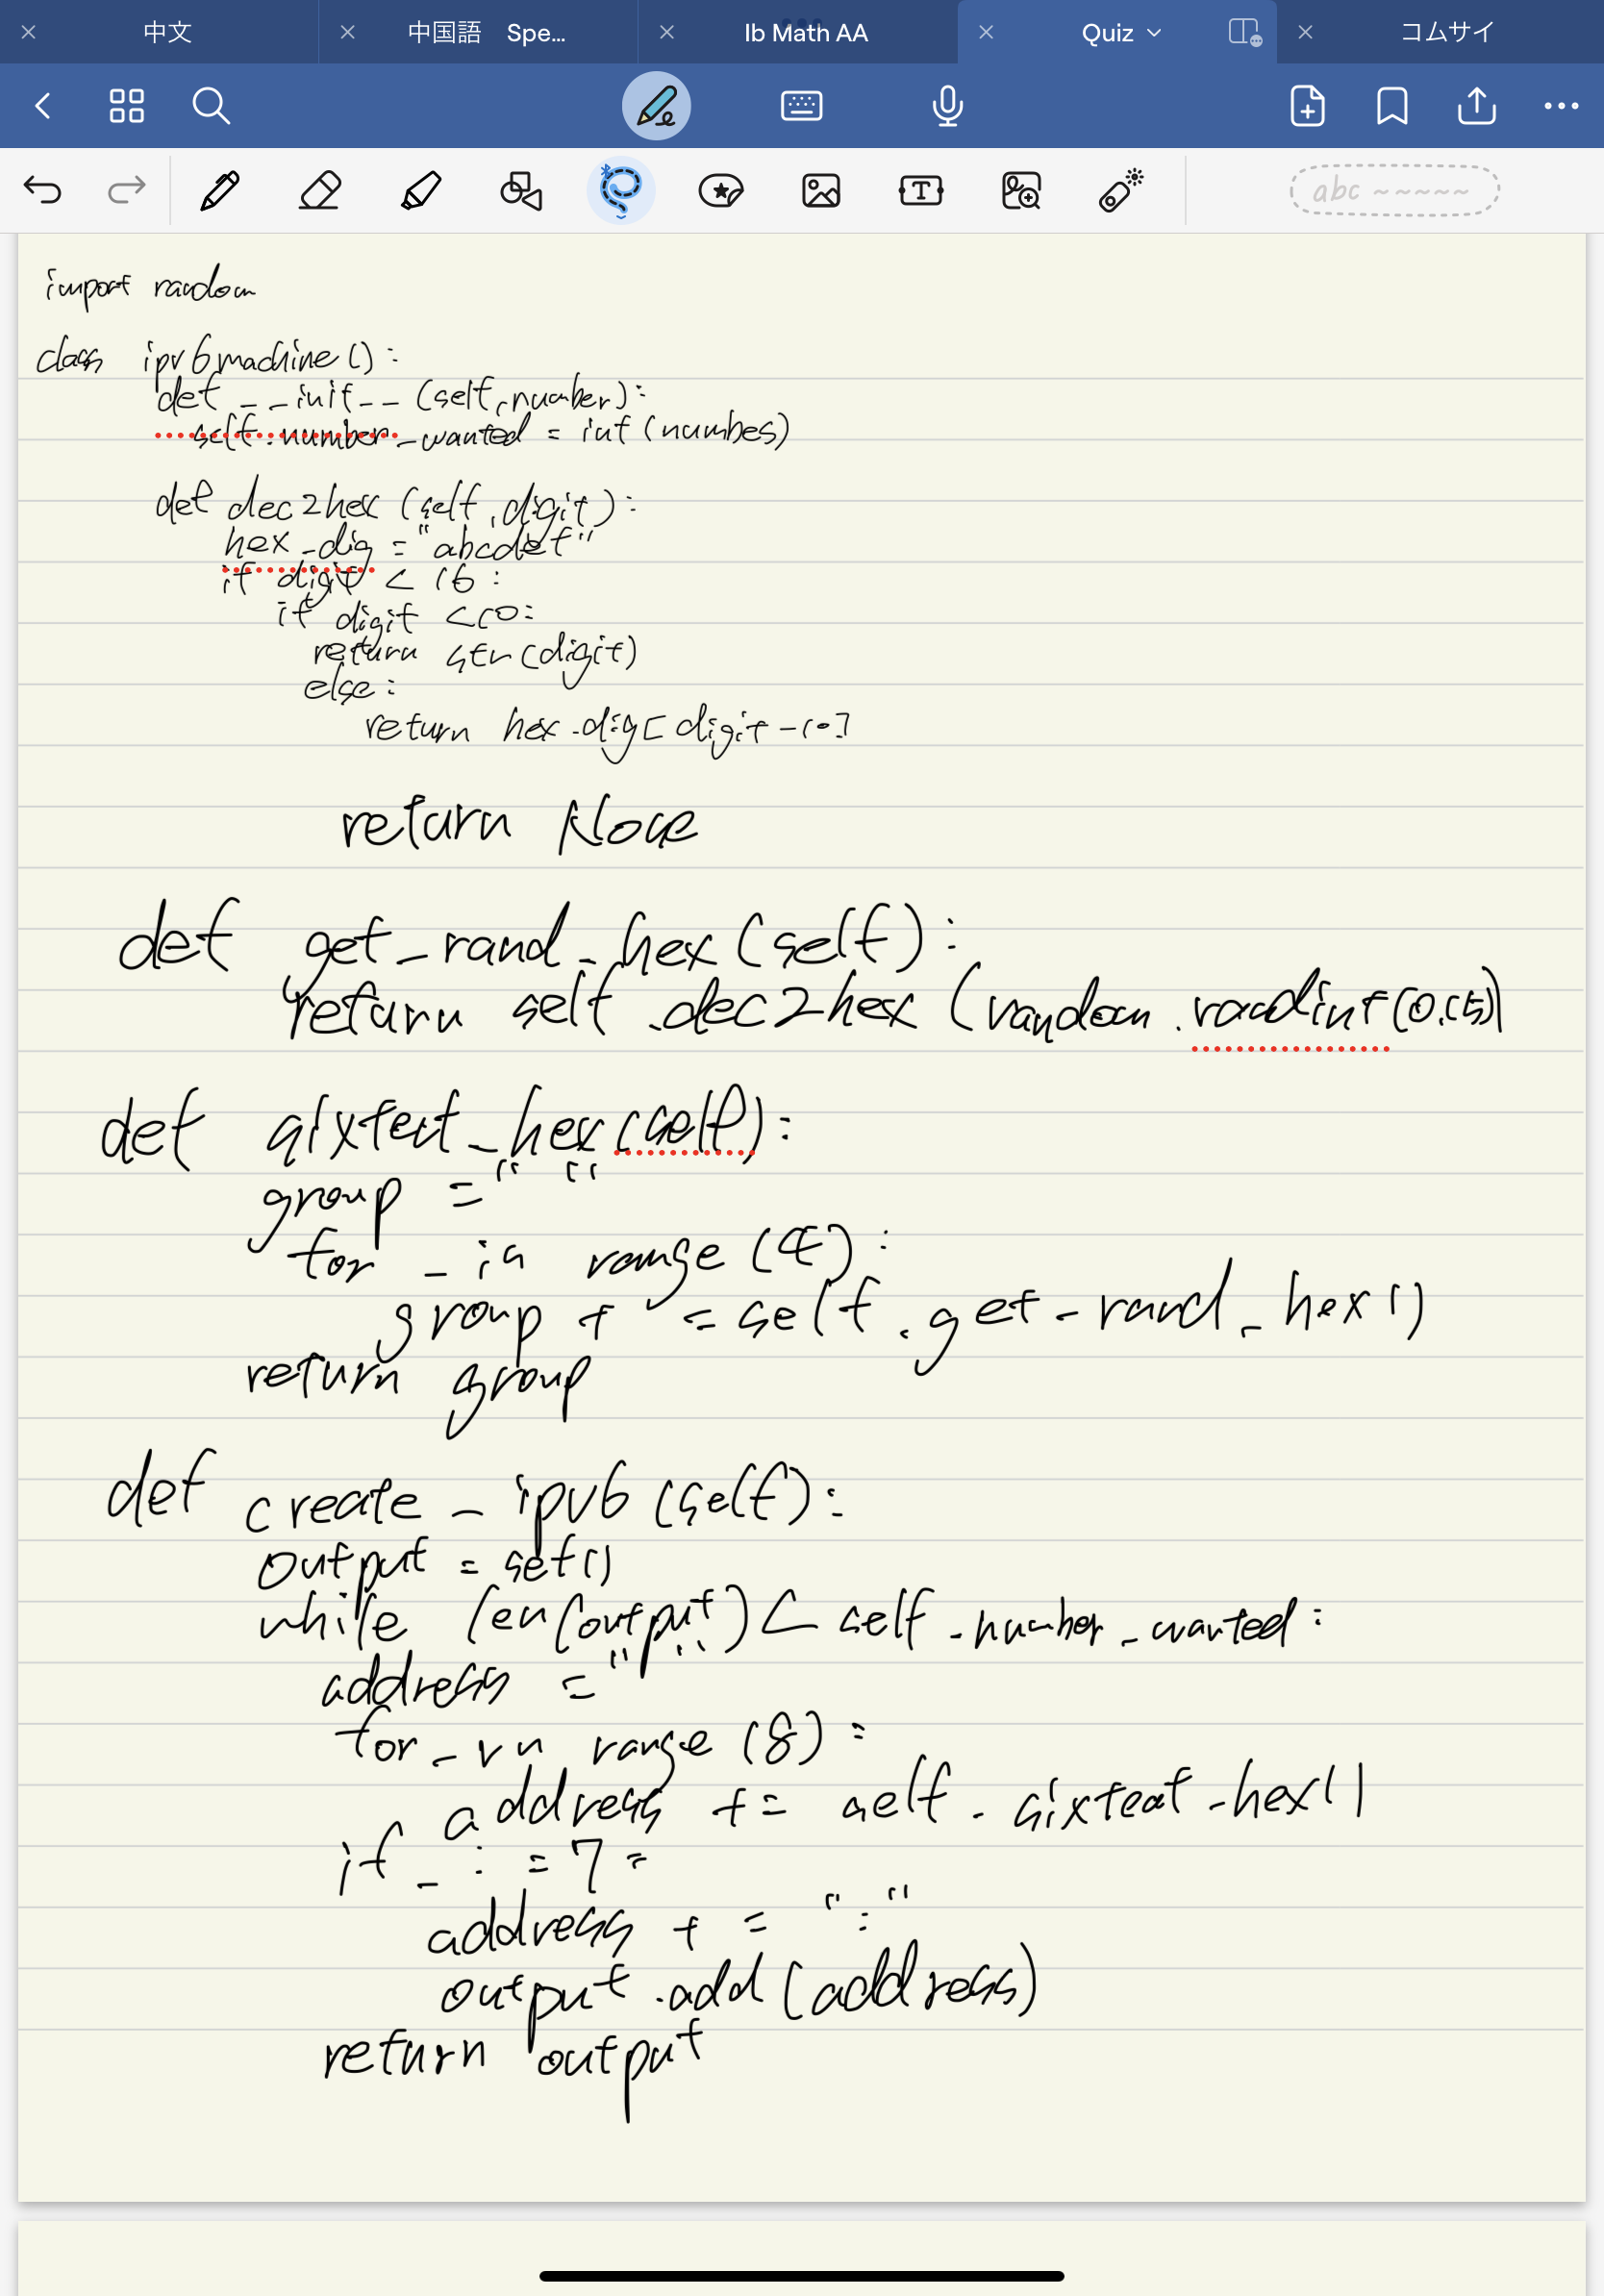 中文
中国語 Spe...
Ib Math AA
Quiz
コムサイ
abc
import random
class ipv6machine():
def __init__(self,number):
self.number_wanted = int(number)
def dec2hex(self,digit):
hex_dig = "abcdef"
if digit < 16:
if digit <10:
return str(digit)
else:
return hex_dig[digit-10]
return None
def get_rand_hex(self):
return self.dec2hex(random.randint(0,15))
def sixteat_hex(self):
group = " "
for _ in range(4):
group += self.get_rand_hex()
return group
def create_ipv6(self):
output = set()
while len(output) < self.number_wanted:
address = " "
for _ in range(8):
address += self.sixteat_hex()
if _ != 7:
address += ":"
output.add(address)
return output